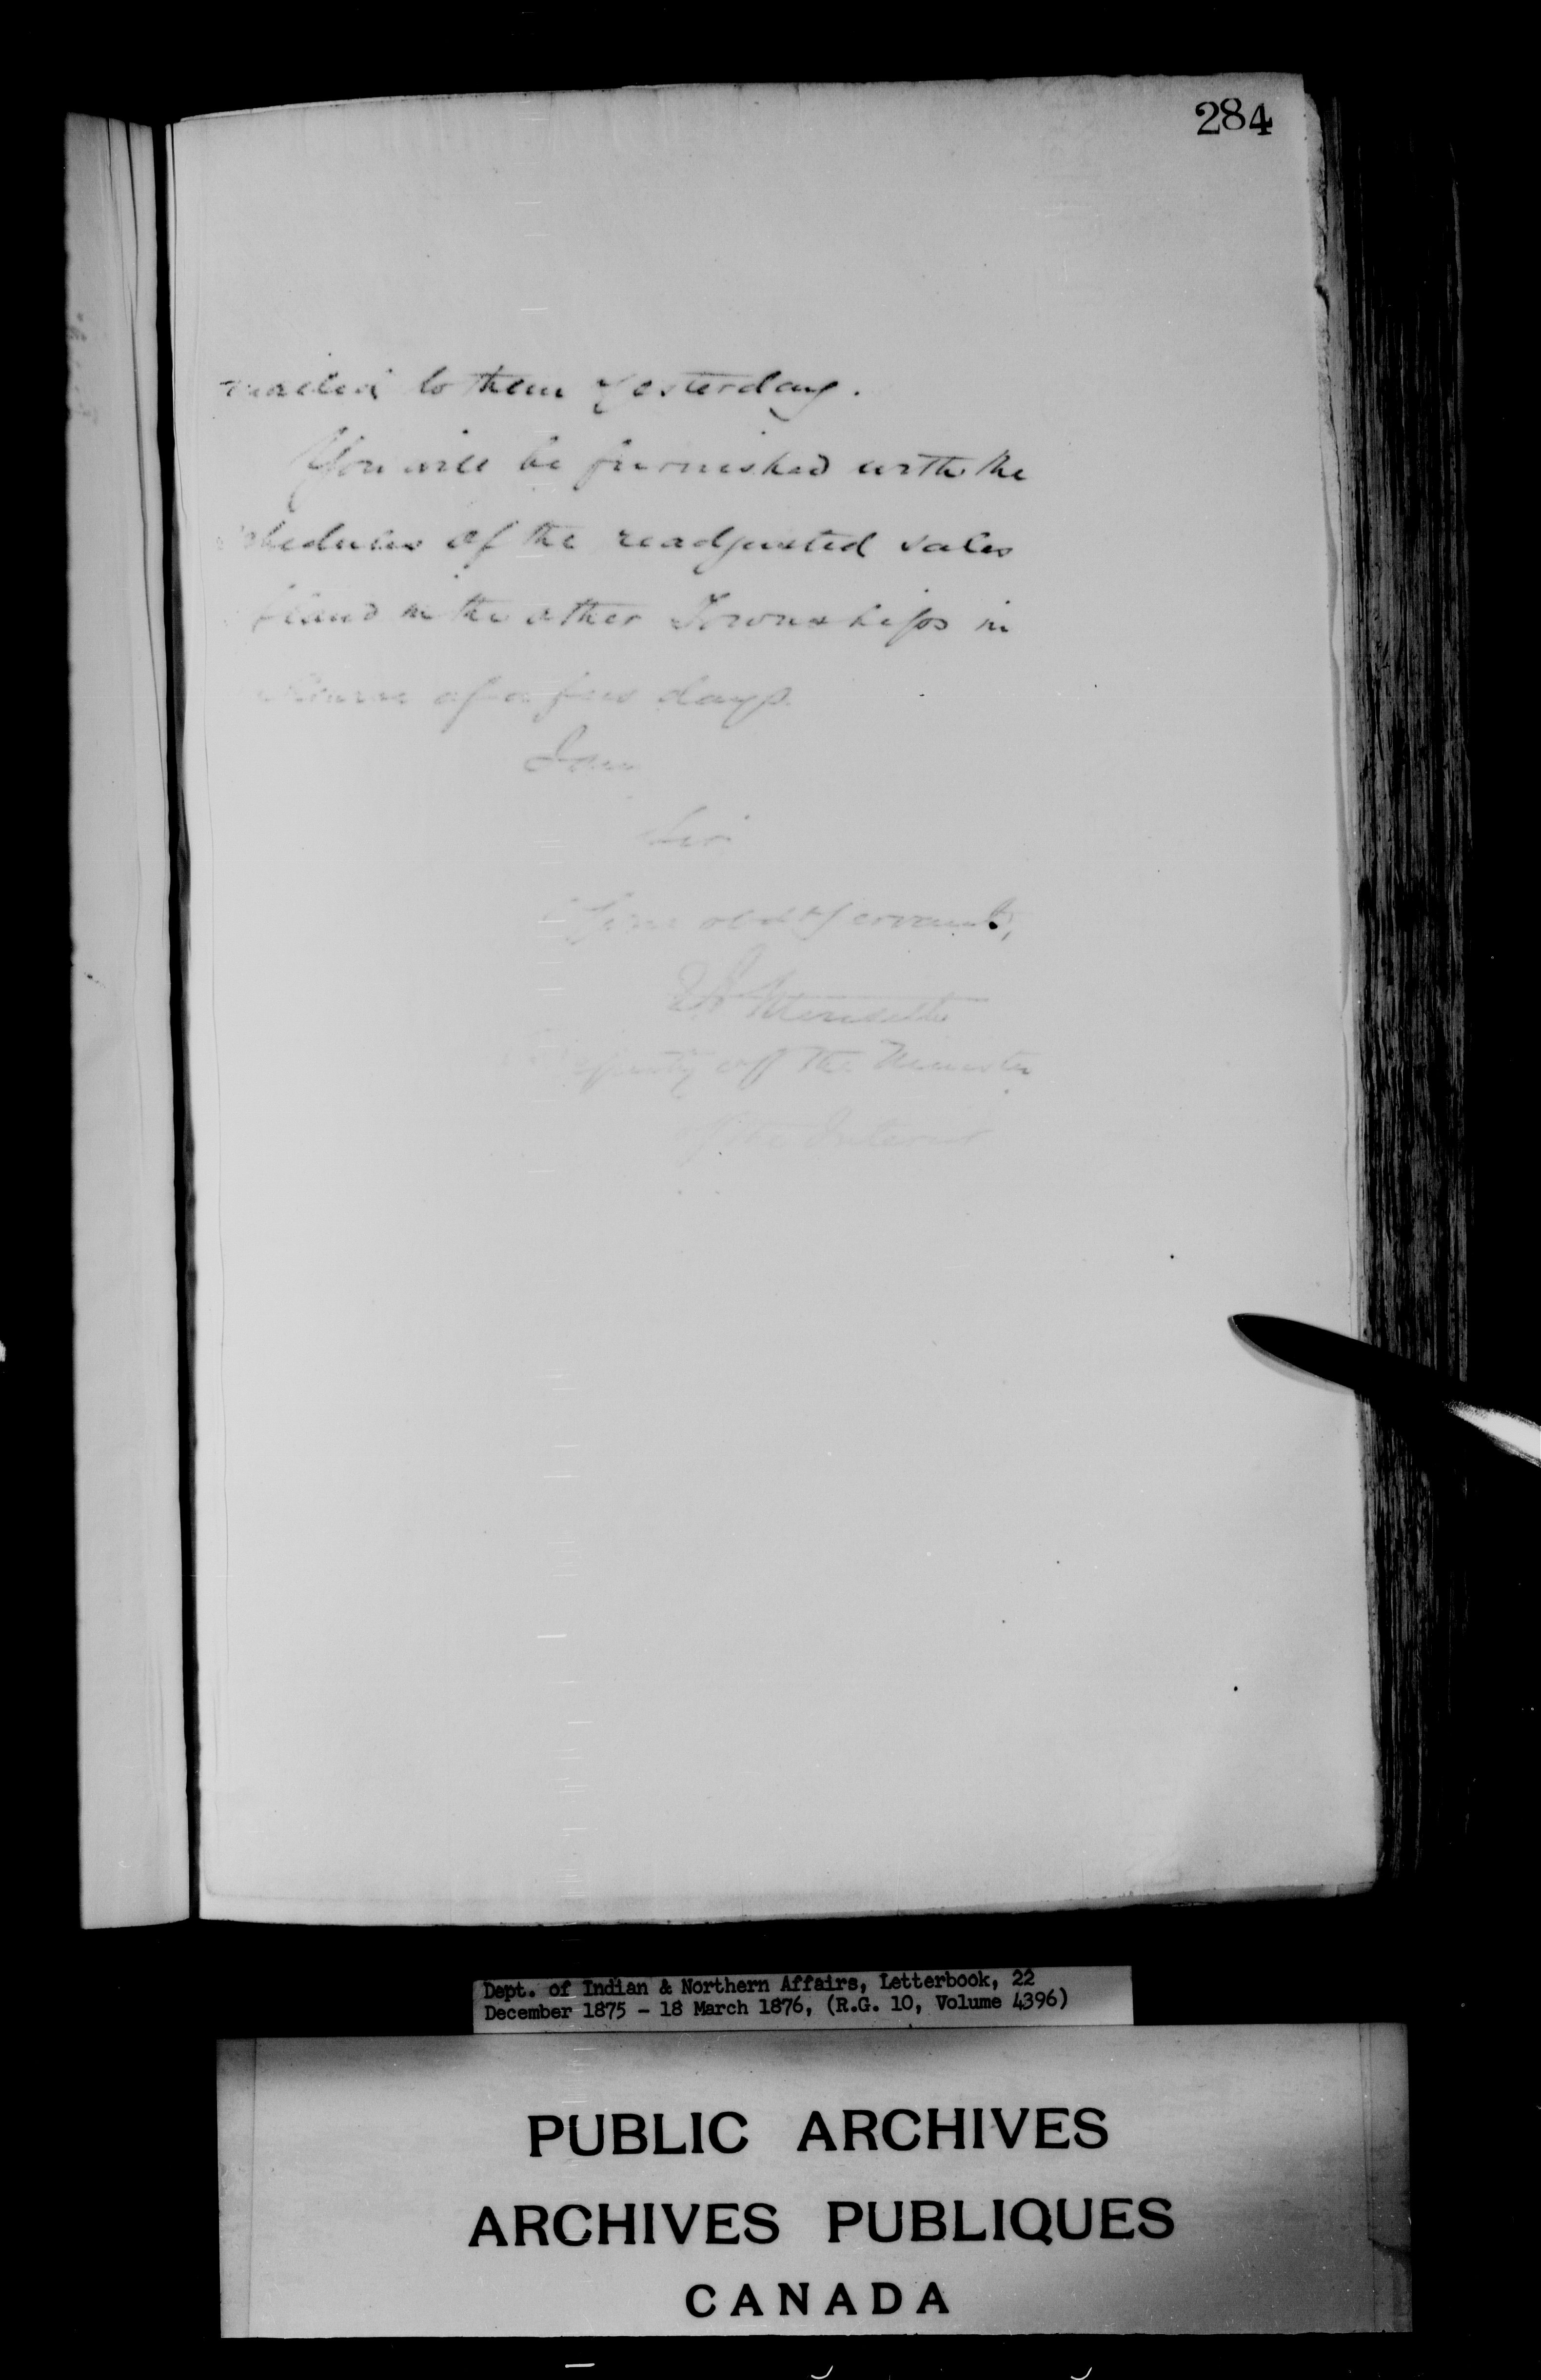 284
mailed to them yesterday.
You will be furnished with the
schedules of the readjusted sales
of land in the other Townships in
course of a few days.
I am
Sir
Your obdt servant,
E A Meredith
Deputy of the Minister
of the Interior
Dept. of Indian & Northern Affairs, Letterbook, 22
December 1875 - 18 March 1876, (R.G. 10, Volume 4396)
PUBLIC ARCHIVES
ARCHIVES PUBLIQUES
CANADA